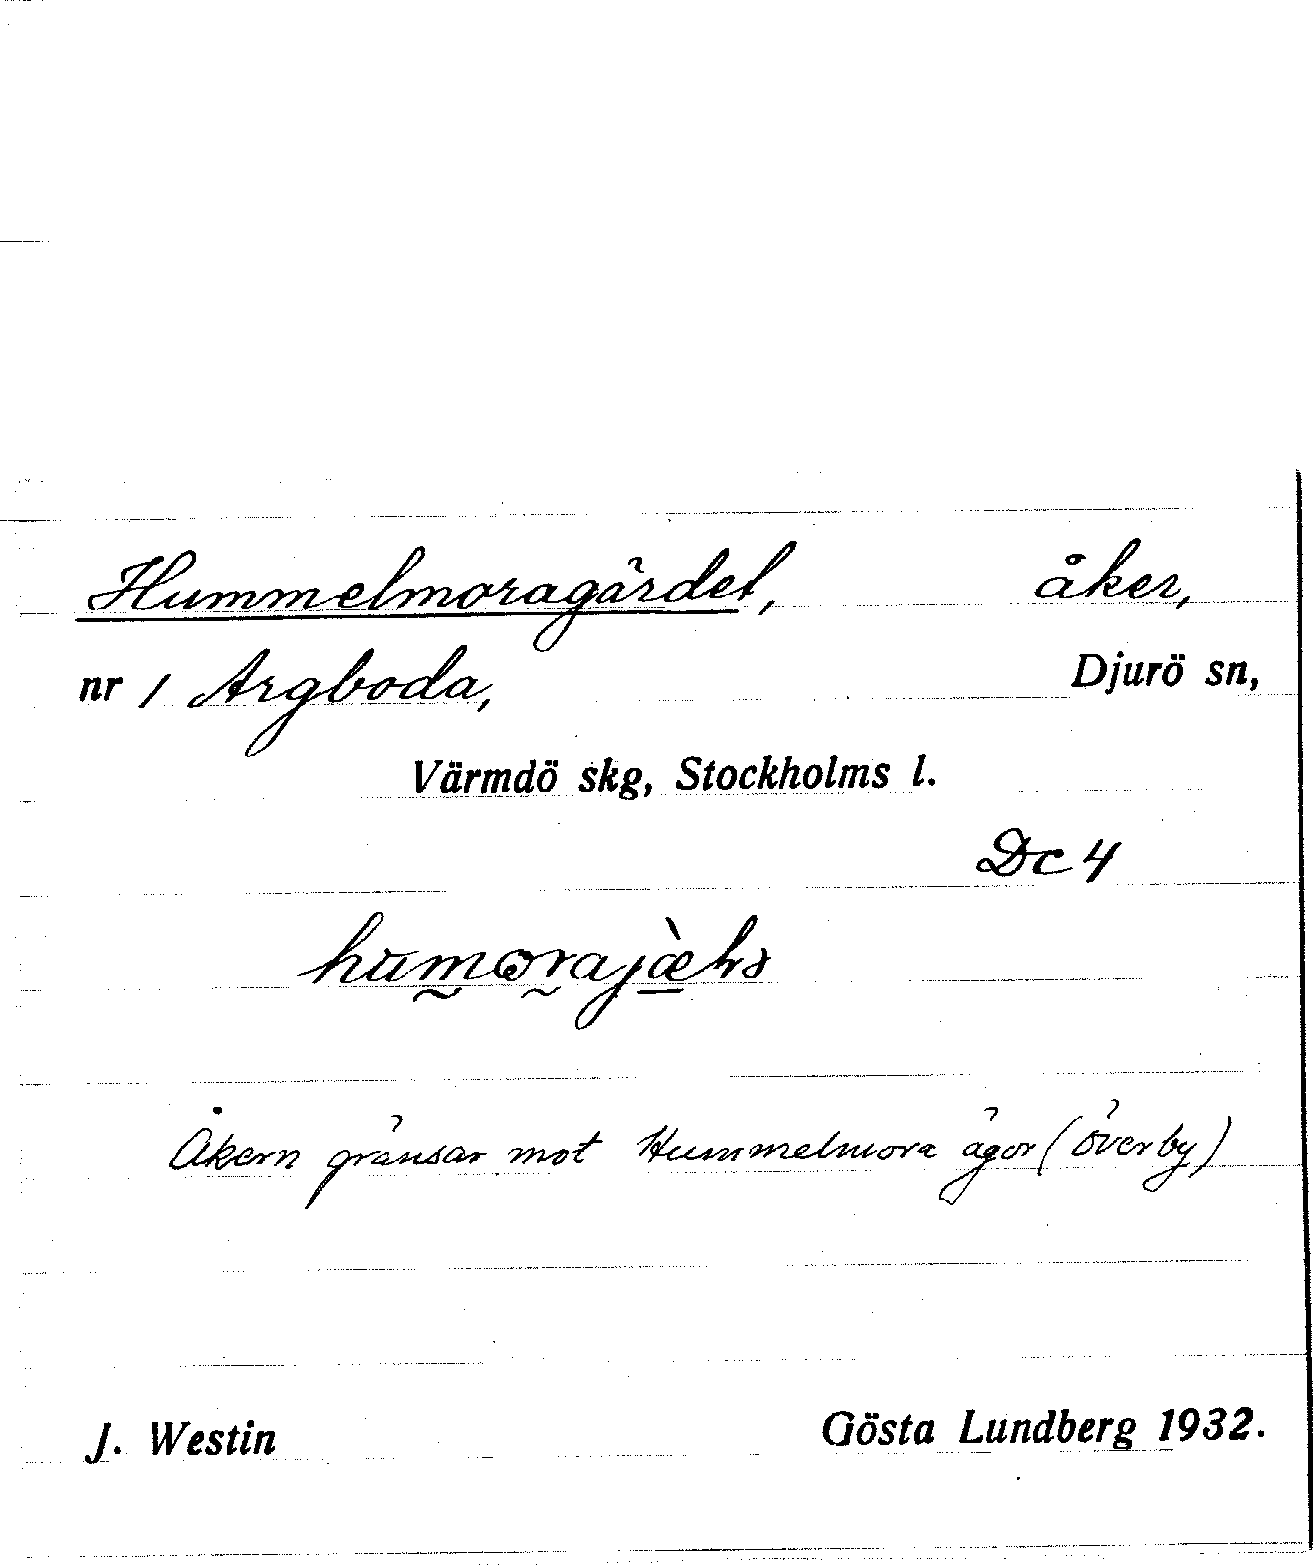 Hummelmoragärdet, åker,
nr 1 Argboda, Djurö sn,
Värmdö skg, Stockholms l.
Dc 4
Åkern gränsar mot Hummelmora ägor (överby)
J. Westin Gösta Lundberg 1932.